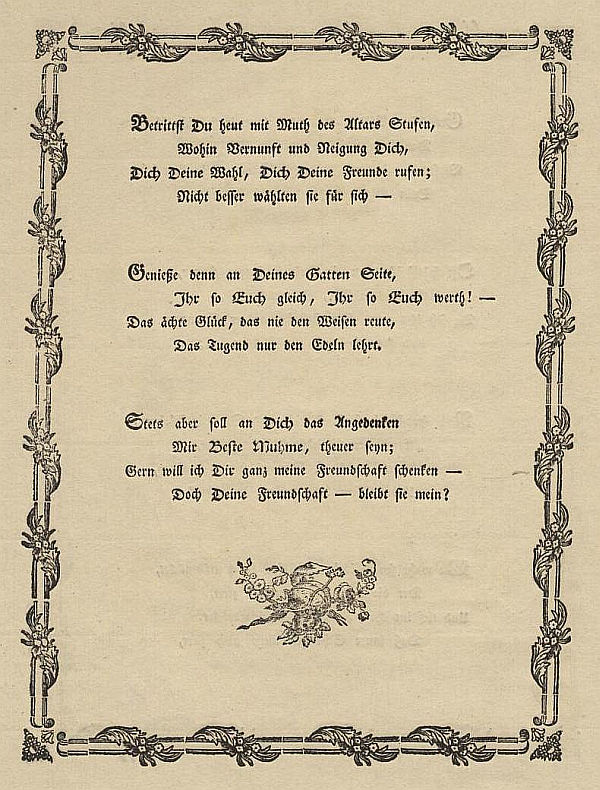 Betrittst Du heut mit Muth des Altars Stufen,
Wohin Vernunft und Neigung Dich,
Dich Deine Wahl, Dich Deine Freunde rufen;
Nicht besser wählten sie für sich —
Genieße denn an Deines Gatten Seite,
Ihr so Euch gleich, Ihr so Euch werth! —
Das ächte Glück, das nie den Weisen reute,
Das Tugend nur den Edeln lehrt.
Stets aber soll an Dich das Angedenken
Mir Beste Muhme, theuer seyn;
Gern will ich Dir ganz meine Freundschaft schenken —
Doch Deine Freundschaft — bleibt sie mein?